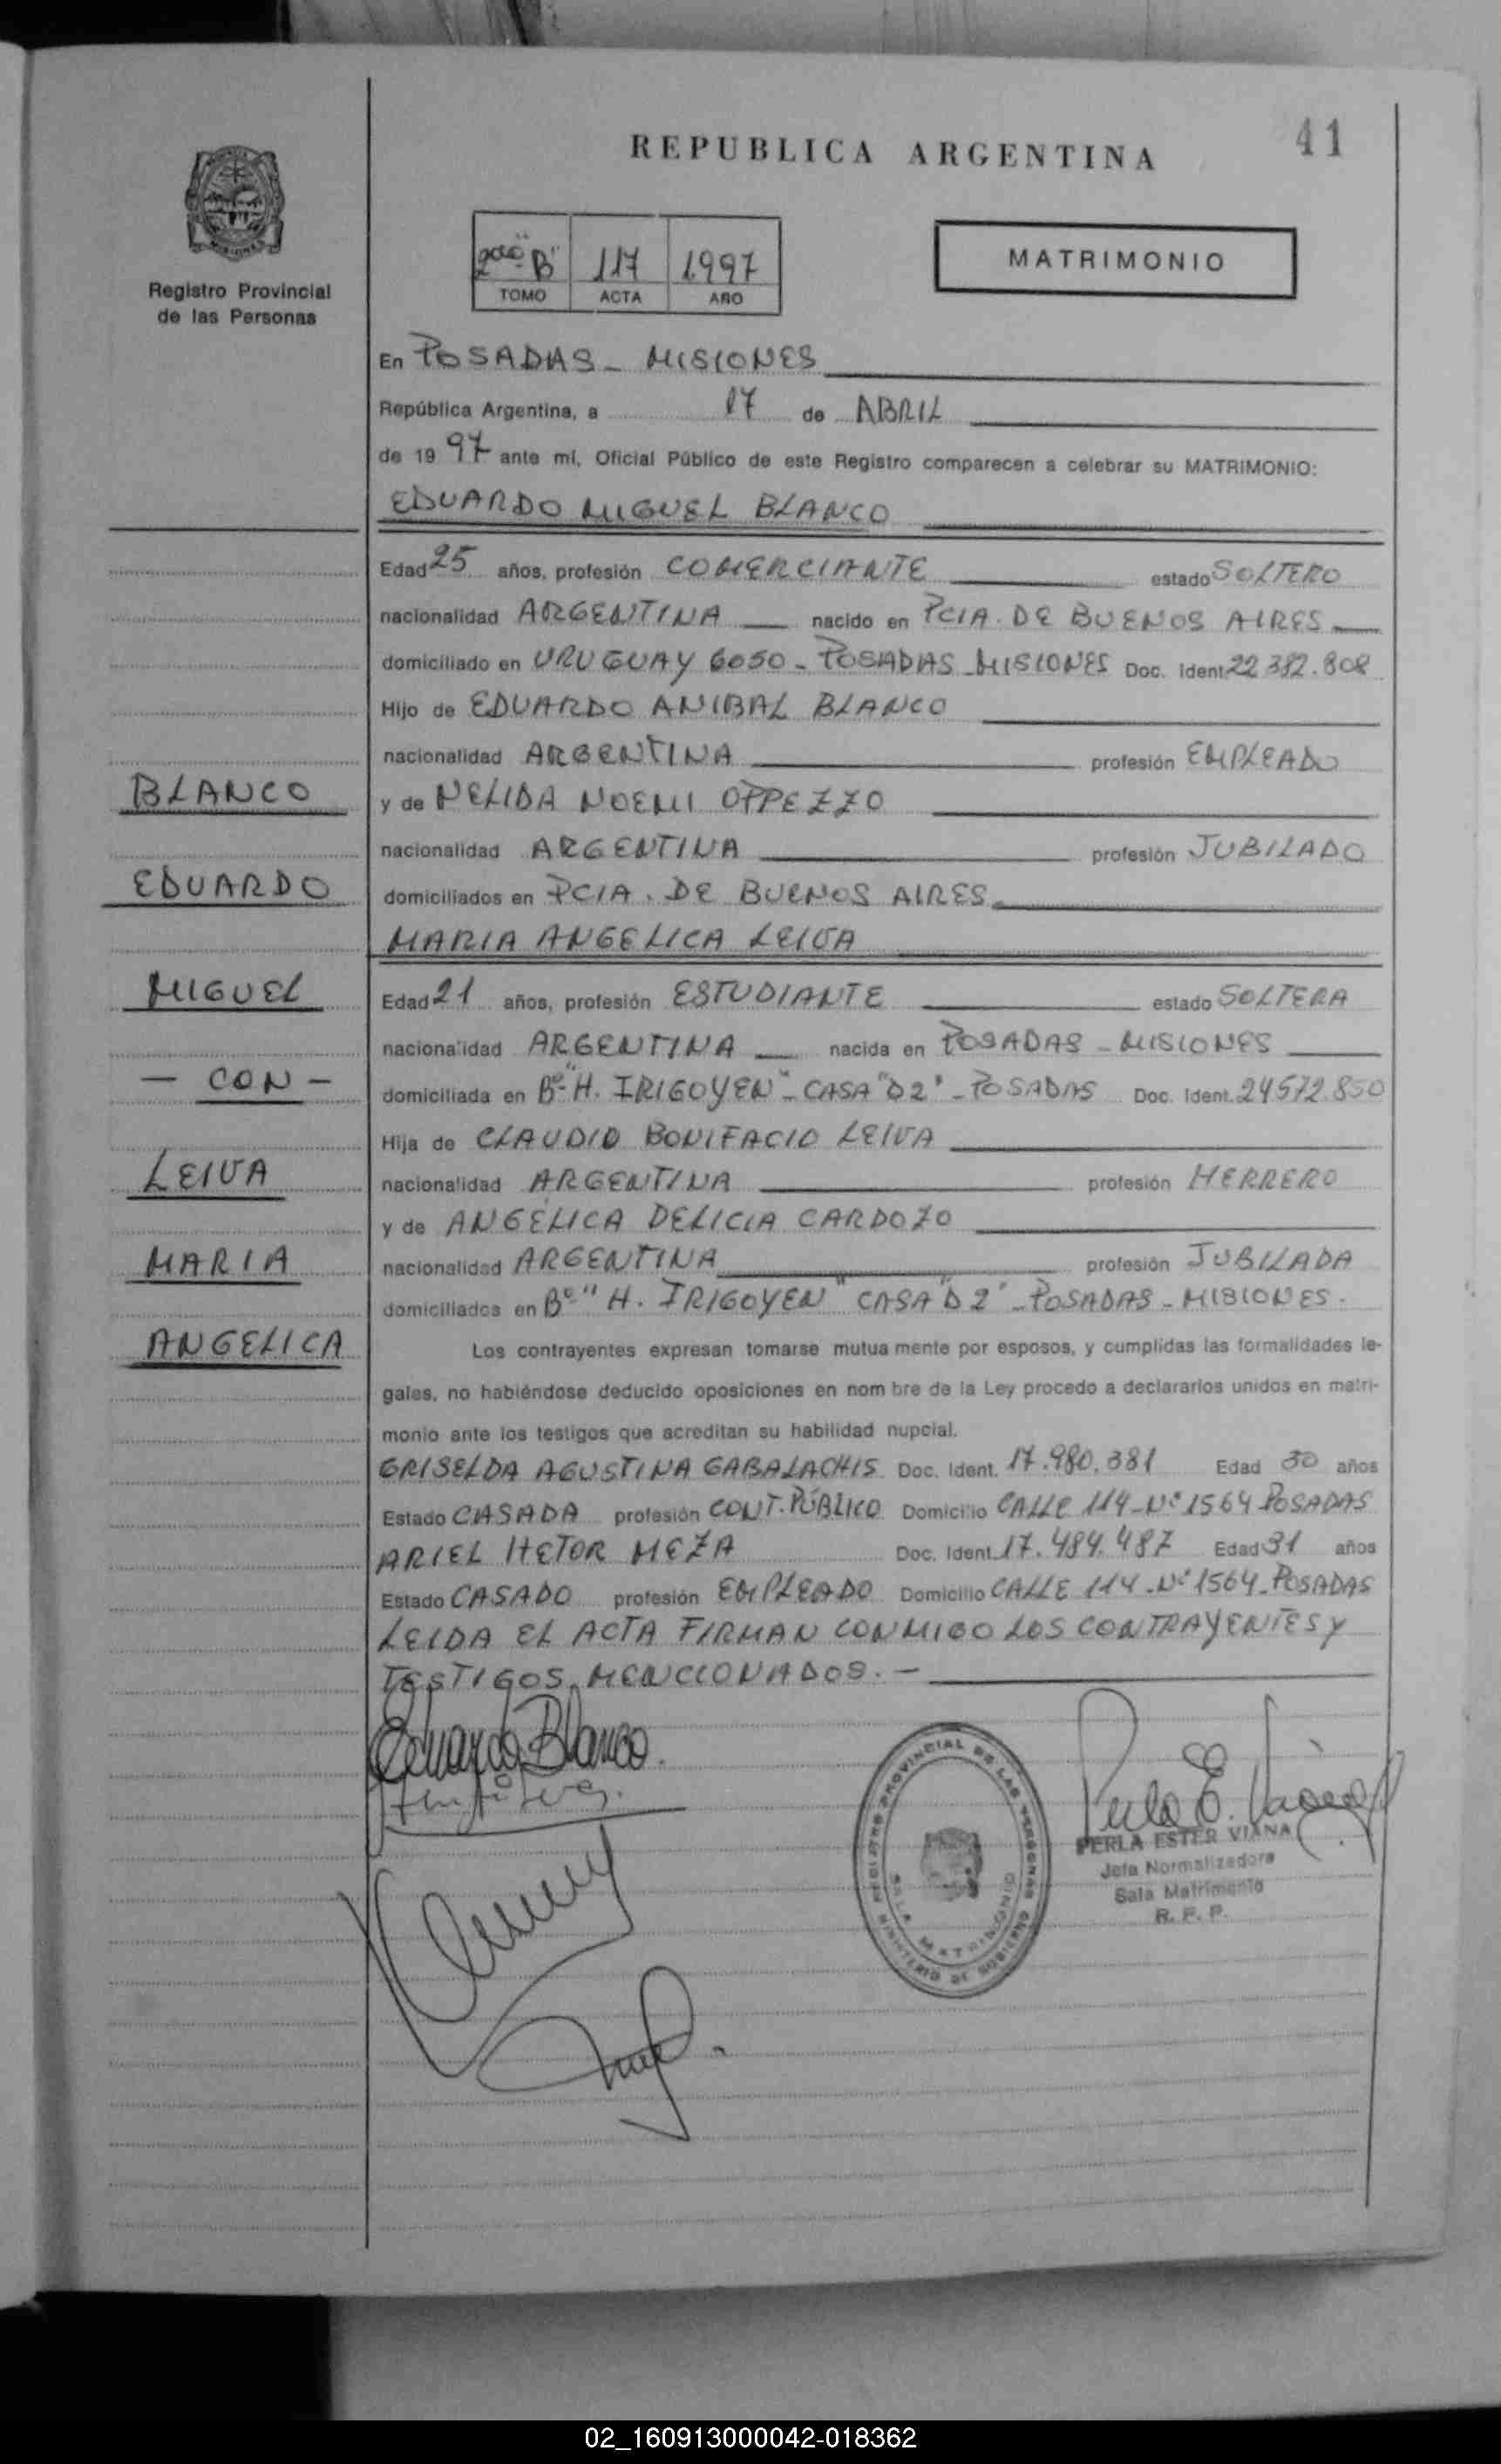 41
REPUBLICA ARGENTINA
Registro Provincial
de las Personas
2do "B" 117 1997
TOMO ACTA AÑO
MATRIMONIO
En POSADAS - MISIONES
República Argentina, a 17 de ABRIL
de 1997 ante mí, Oficial Público de este Registro comparecen a celebrar su MATRIMONIO:
EDUARDO MIGUEL BLANCO
Edad 25 años, profesión COMERCIANTE estado SOLTERO
nacionalidad ARGENTINA nacido en PCIA. DE BUENOS AIRES
domiciliado en URUGUAY 6050 - POSADAS - MISIONES Doc. Ident. 22.382.808
Hijo de EDUARDO ANIBAL BLANCO
nacionalidad ARGENTINA profesión EMPLEADO
y de NELIDA NOEMI OPPEZZO
nacionalidad ARGENTINA profesión JUBILADO
domiciliados en PCIA. DE BUENOS AIRES
MARIA ANGELICA LEIVA
Edad 21 años, profesión ESTUDIANTE estado SOLTERA
nacionalidad ARGENTINA nacida en POSADAS - MISIONES
domiciliada en Bº "H. IRIGOYEN" - CASA "D2" - POSADAS Doc. Ident. 24572.850
Hija de CLAUDIO BONIFACIO LEIVA
nacionalidad ARGENTINA profesión HERRERO
y de ANGELICA DELICIA CARDOZO
nacionalidad ARGENTINA profesión JUBILADA
domiciliados en Bº "H. IRIGOYEN" CASA "D2" - POSADAS - MISIONES.
BLANCO
EDUARDO
MIGUEL
- CON -
LEIVA
MARIA
ANGELICA
Los contrayentes expresan tomarse mutua mente por esposos, y cumplidas las formalidades le-
gales, no habiéndose deducido oposiciones en nom bre de la Ley procedo a declararlos unidos en matri-
monio ante los testigos que acreditan su habilidad nupcial.
GRISELDA AGUSTINA GABALACHIS Doc. Ident. 17.980.381 Edad 30 años
Estado CASADA profesión CONT. PÚBLICO Domicilio CALLE 114 - Nº 1564 POSADAS
ARIEL HETOR MEZA Doc. Ident. 17.484.487 Edad 31 años
Estado CASADO profesión EMPLEADO Domicilio CALLE 114 - Nº 1564 - POSADAS
LEIDA EL ACTA FIRMAN CONMIGO LOS CONTRAYENTES Y
TESTIGOS MENCIONADOS. -
Eduardo Blanco
REGISTRO PROVINCIAL DE LAS PERSONAS
SALA MATRIMONIO
MINISTERIO DE GOBIERNO
PERLA ESTER VIANA
Jefa Normalizadora
Sala Matrimonio
R. P. P.
02_160913000042-018362